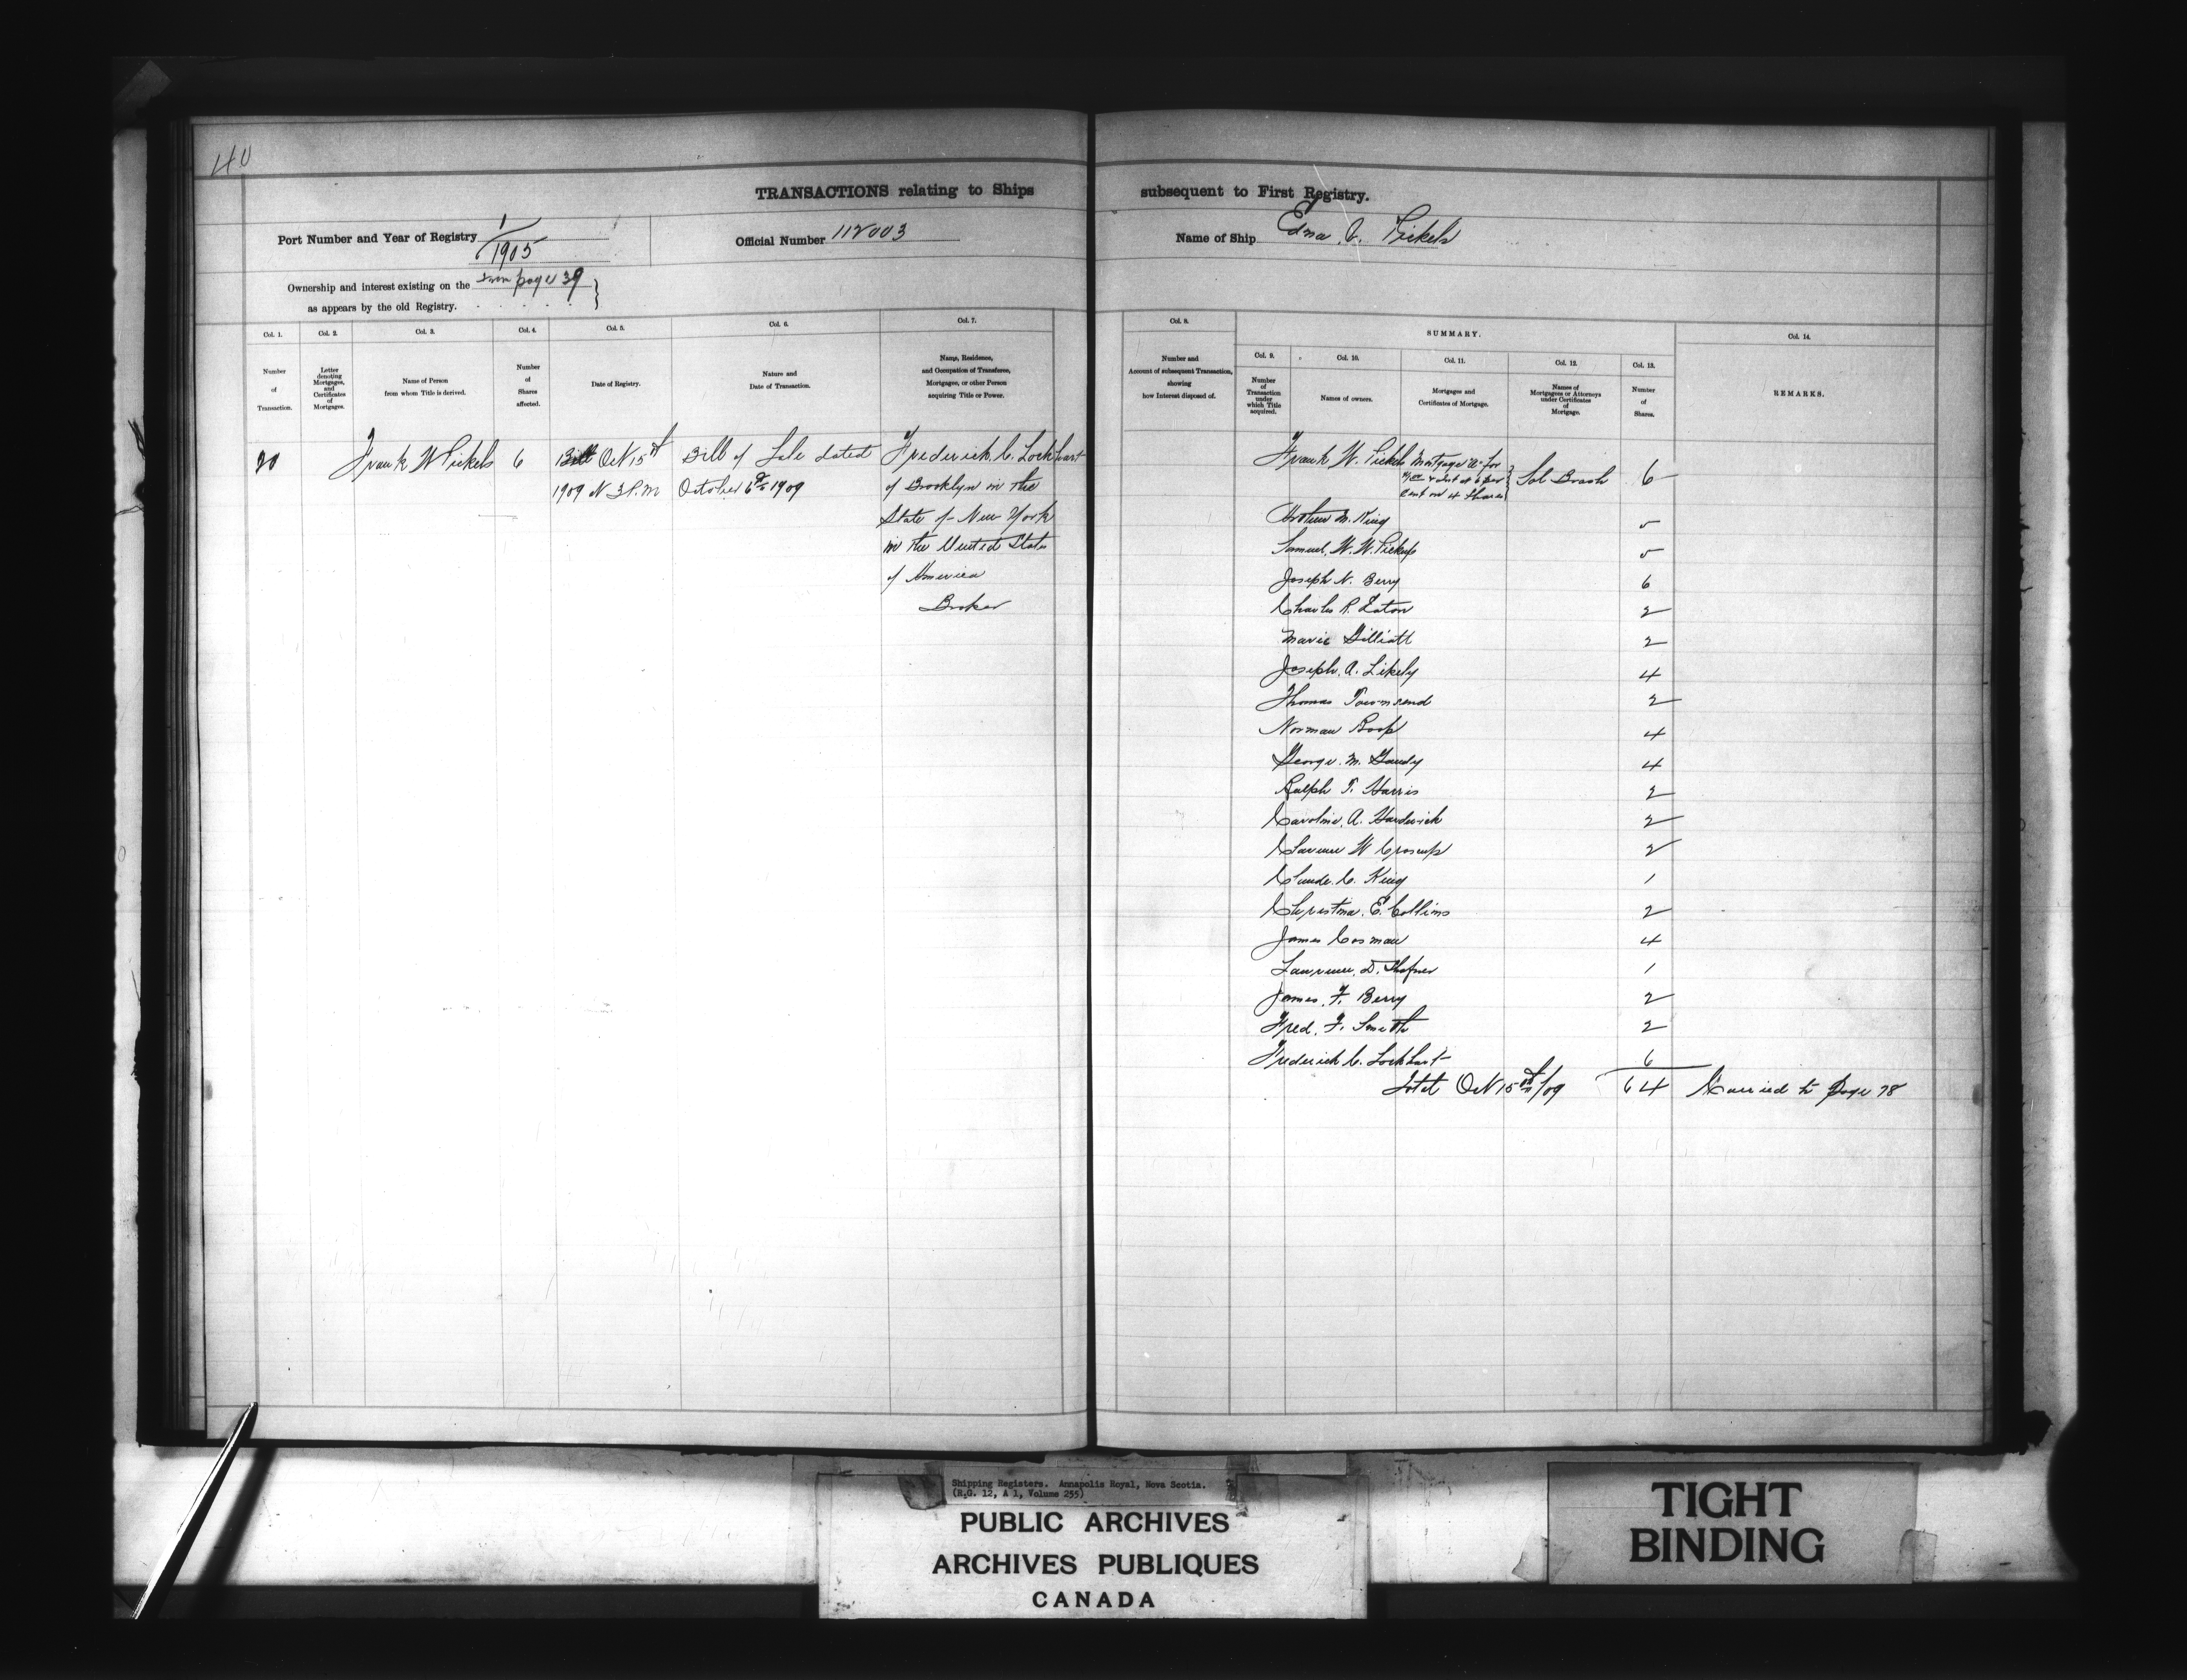 40
TRANSACTIONS relating to Ships subsequent to First Registry.
Port Number and Year of Registry 1/1905
Official Number 112003
Name of Ship Edna V. Pickels
Ownership and interest existing on the from page 39
as appears by the old Registry.
Col. 1.
Number
of
Transaction.
Col. 2.
Letter
denoting
Mortgages,
and
Certificates
of
Mortgages.
Col. 3.
Name of Person
from whom Title is derived.
Col. 4.
Number
of
Shares
affected.
Col. 5.
Date of Registry.
Col. 6.
Nature and
Date of Transaction.
Col. 7.
Name, Residence,
and Occupation of Transferee,
Mortgagee, or other Person
acquiring Title or Power.
20
Frank W Pickels
6
Oct 15th
1909 at 3 P.M
Bill of Sale dated
October 6th 1909
Frederick C. Lockhart
of Brooklyn in the
State of New York
in the United States
of America
Broker
Col. 8.
Number and
Account of subsequent Transaction,
showing
how Interest disposed of.
SUMMARY.
Col. 9.
Number
of
Transaction
under
which Title
acquired.
Col. 10.
Names of owners.
Col. 11.
Mortgages and
Certificates of Mortgage.
Col. 12.
Names of
Mortgagees or Attorneys
under Certificates
of
Mortgage.
Col. 13.
Number
of
Shares.
Col. 14.
REMARKS.
Frank W. Pickels Mortgage "A" for
& Int at 6 per
Cent on 4 Shares
6
King 5
Samuel W. W. Pickup 5
Joseph N. Berry 6
Charles R. Eaton 2
Marie Gilliatt 2
Joseph A. Likely 4
Thomas Townsend 2
Norman Roop 4
George M. 4
Ralph T. Harris 2
Caroline A. Hardwick 2
W Croscup 2
Claude C. King 1
E. Collins 2
James Cosman 4
Lawrence D. Shafner 1
James F. Berry 2
Fred. F. Smith 2
Frederick C. Lockhart 6
Total Oct 15th/09 64 Carried to page 78
Shipping Registers. Annapolis Royal, Nova Scotia.
(R.G. 12, A 1, Volume 255)
PUBLIC ARCHIVES
ARCHIVES PUBLIQUES
CANADA
TIGHT
BINDING